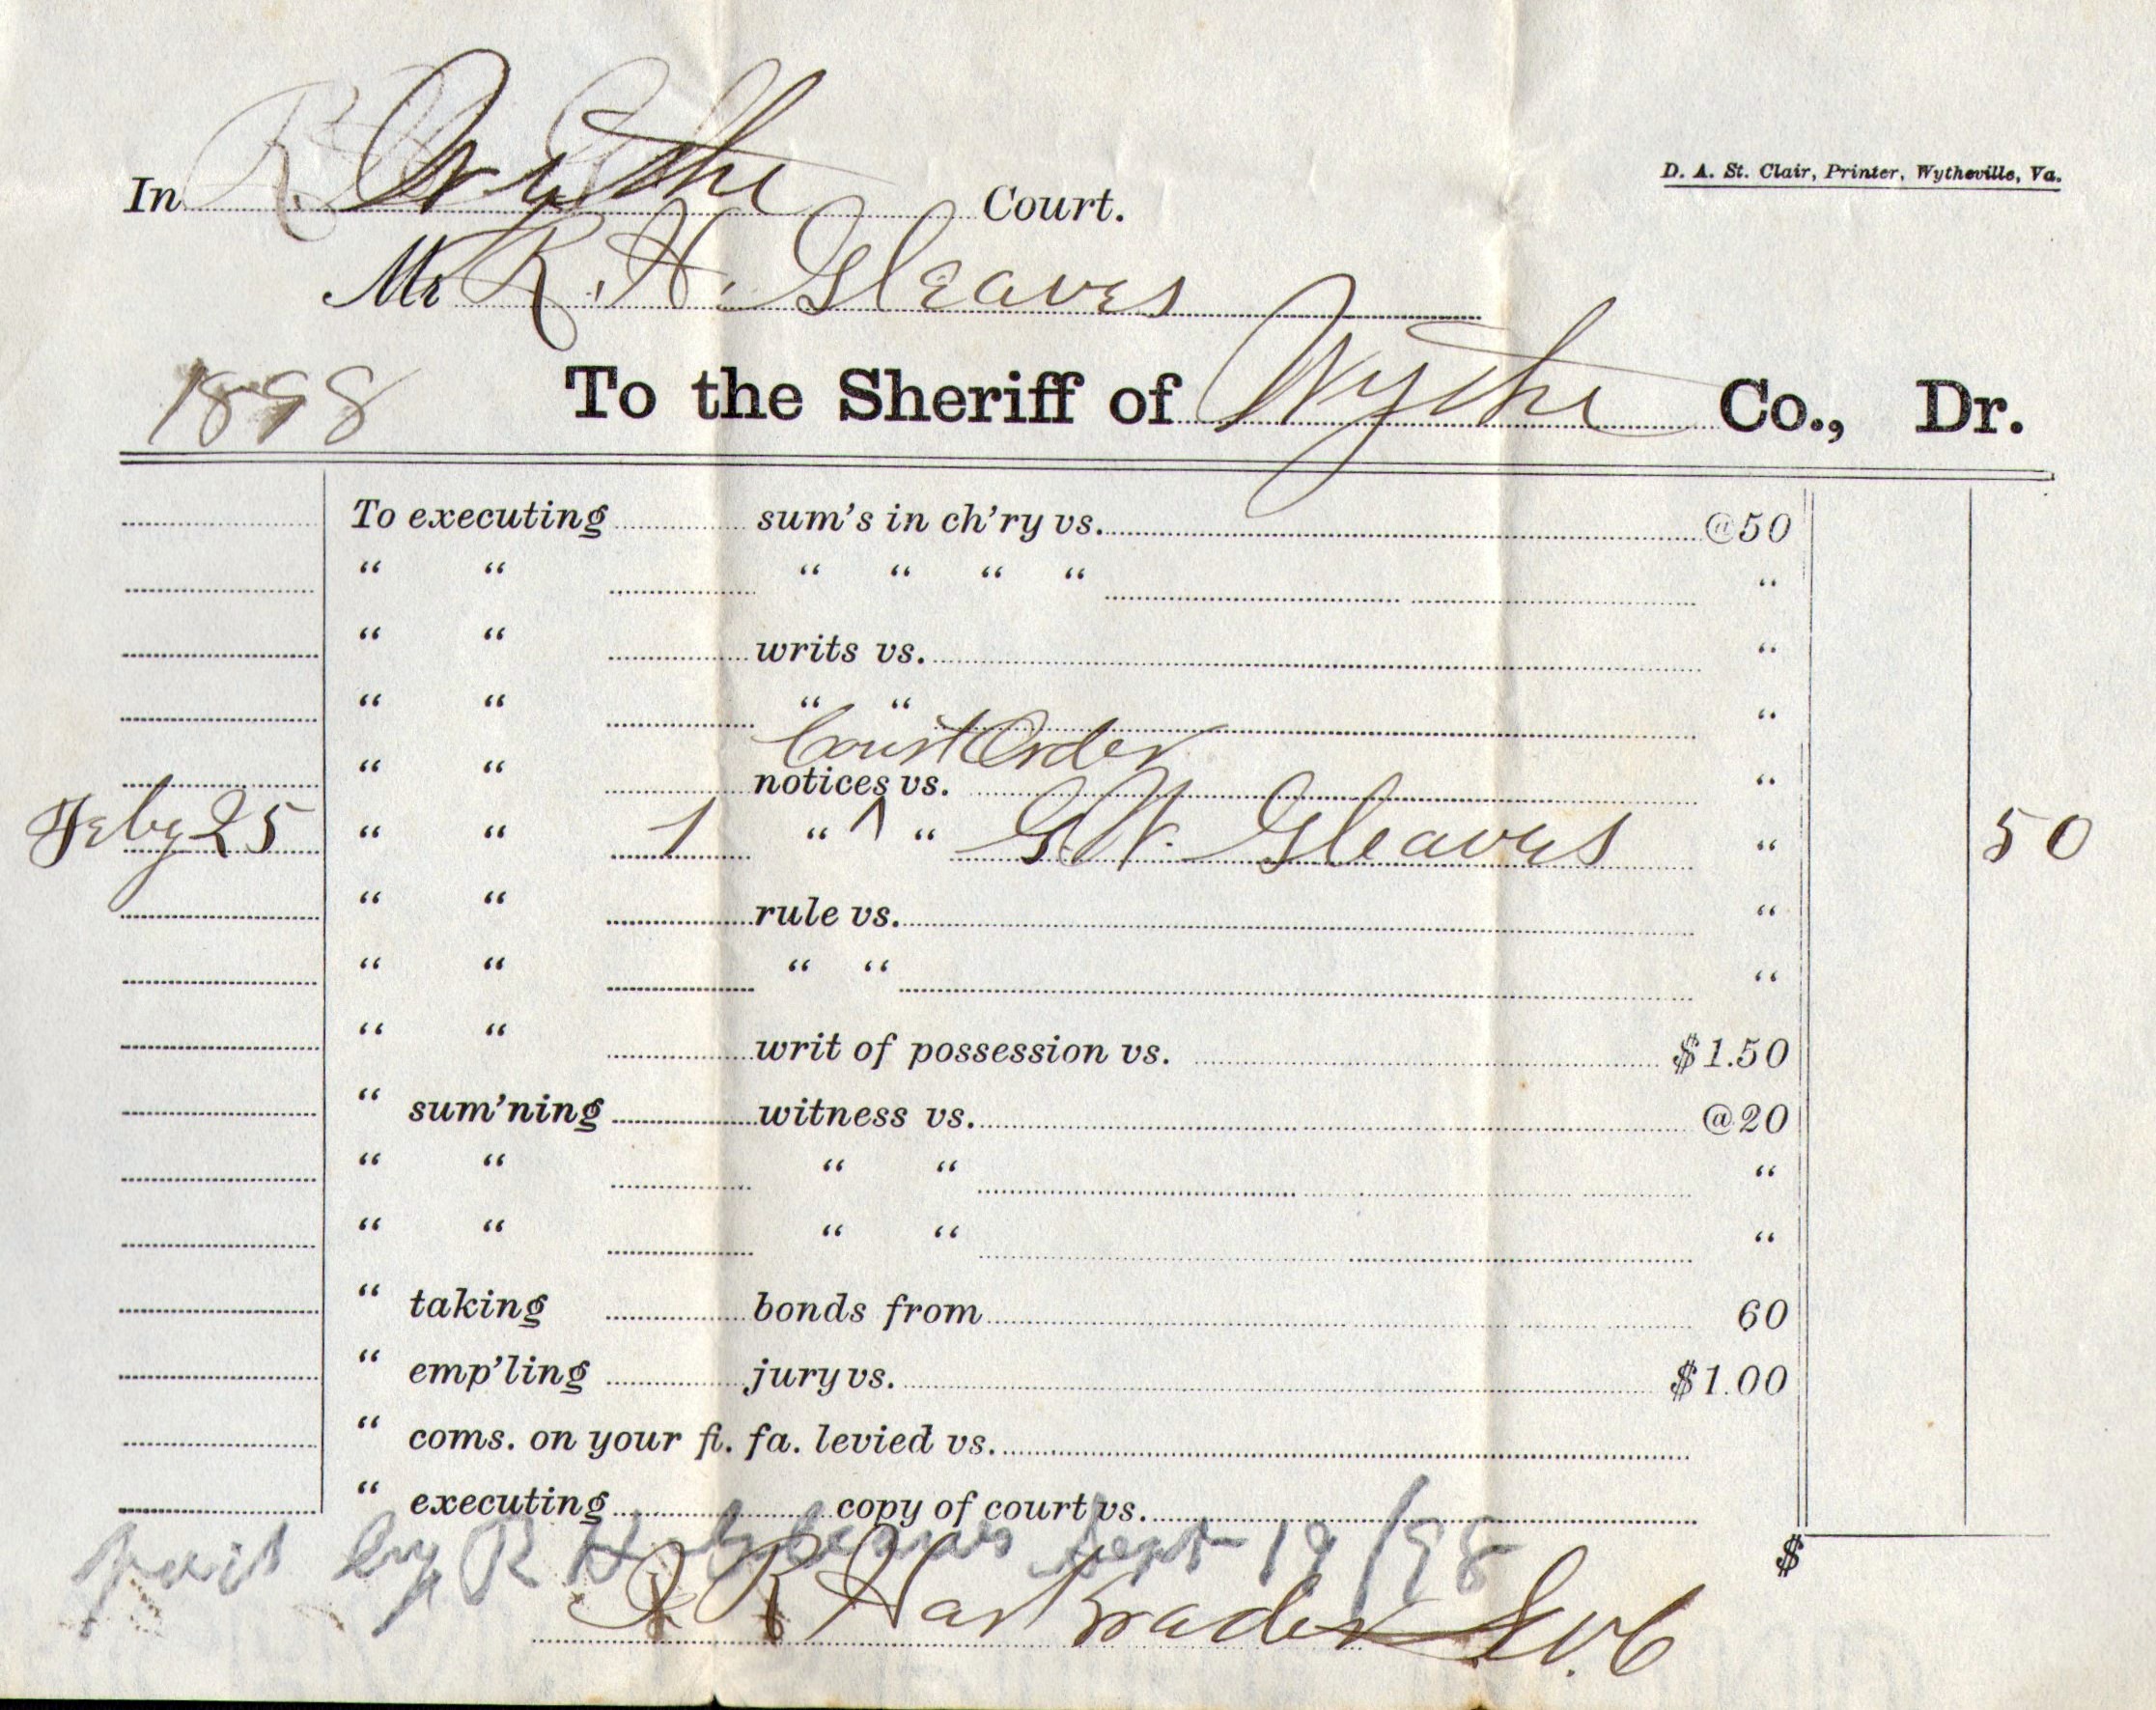 In Wythe Court.
D. A. St. Clair, Printer, Wytheville, Va.
Mr R. H. Gleaves
1898 To the Sheriff of Wythe Co., Dr.
To executing sum's in ch'ry vs. @50
“ “ “ “ “ “ “
“ “ writs vs. “
“ “ “ “ “
Court Order
“ “ notices vs. “
Feby 25 “ “ 1 “ ^ “ G. W. Gleaves “ 50
“ “ rule vs. “
“ “ “ “ “
“ “ writ of possession vs. $1.50
“ sum'ning witness vs. @20
“ “ “ “ “
“ “ “ “ “
“ taking bonds from 60
“ emp'ling jury vs. $1.00
“ coms. on your fi. fa. levied vs.
“ executing copy of court vs.
$
paid by R H Gleaves Sept 19/98
Harkrader S.W.C